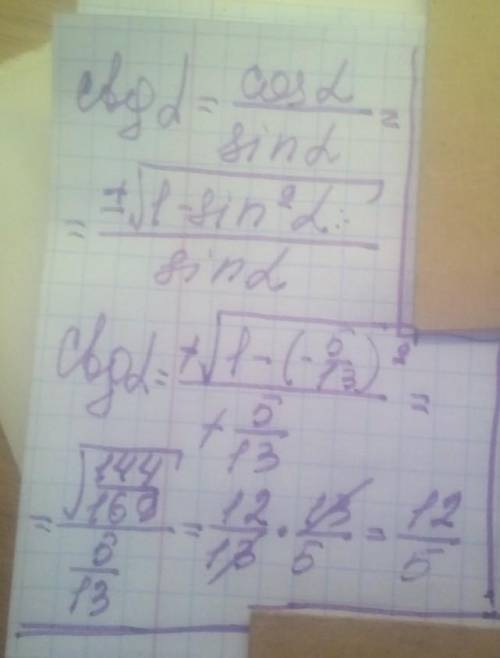 ctg α = cos α / sin α =
= ±√(1 - sin² α) / sin α
ctg α = +√(1 - (-5/13)²) / + 5/13 =
= √(144/169) / (5/13) = 12/13 · 13/5 = 12/5